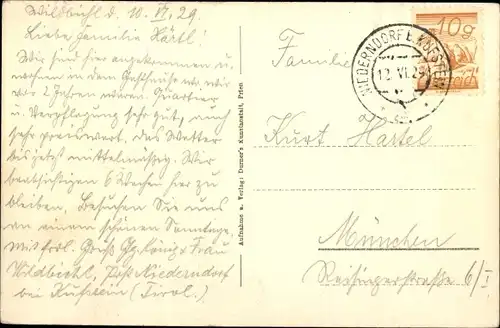 Wildbichl d. 10. VI. 29
Liebe Familie Härtl!
Wir sind hier angekommen u.
wohnen in dem Gasthause wo wir
vor 2 Jahren waren. Quartier
u. Verpflegung sehr gut, auch
sehr preiswert, das Wetter
bis jetzt mittelmäßig. Wir
beabsichtigen 6 Wochen hier zu
bleiben. Besuchen Sie uns
an einem schönen Sonntage.
Mit frdl. Gruß König & Frau
Wildbichl, Post Niederndorf
bei Kufstein (Tirol.)
Aufnahme u. Verlag: Durner's Kunstanstalt, Prien
10g
NIEDERNDORF b. KUFSTEIN
12. VI. 29
Familie
Kurt Härtel
München
Reisingerstraße 6/I